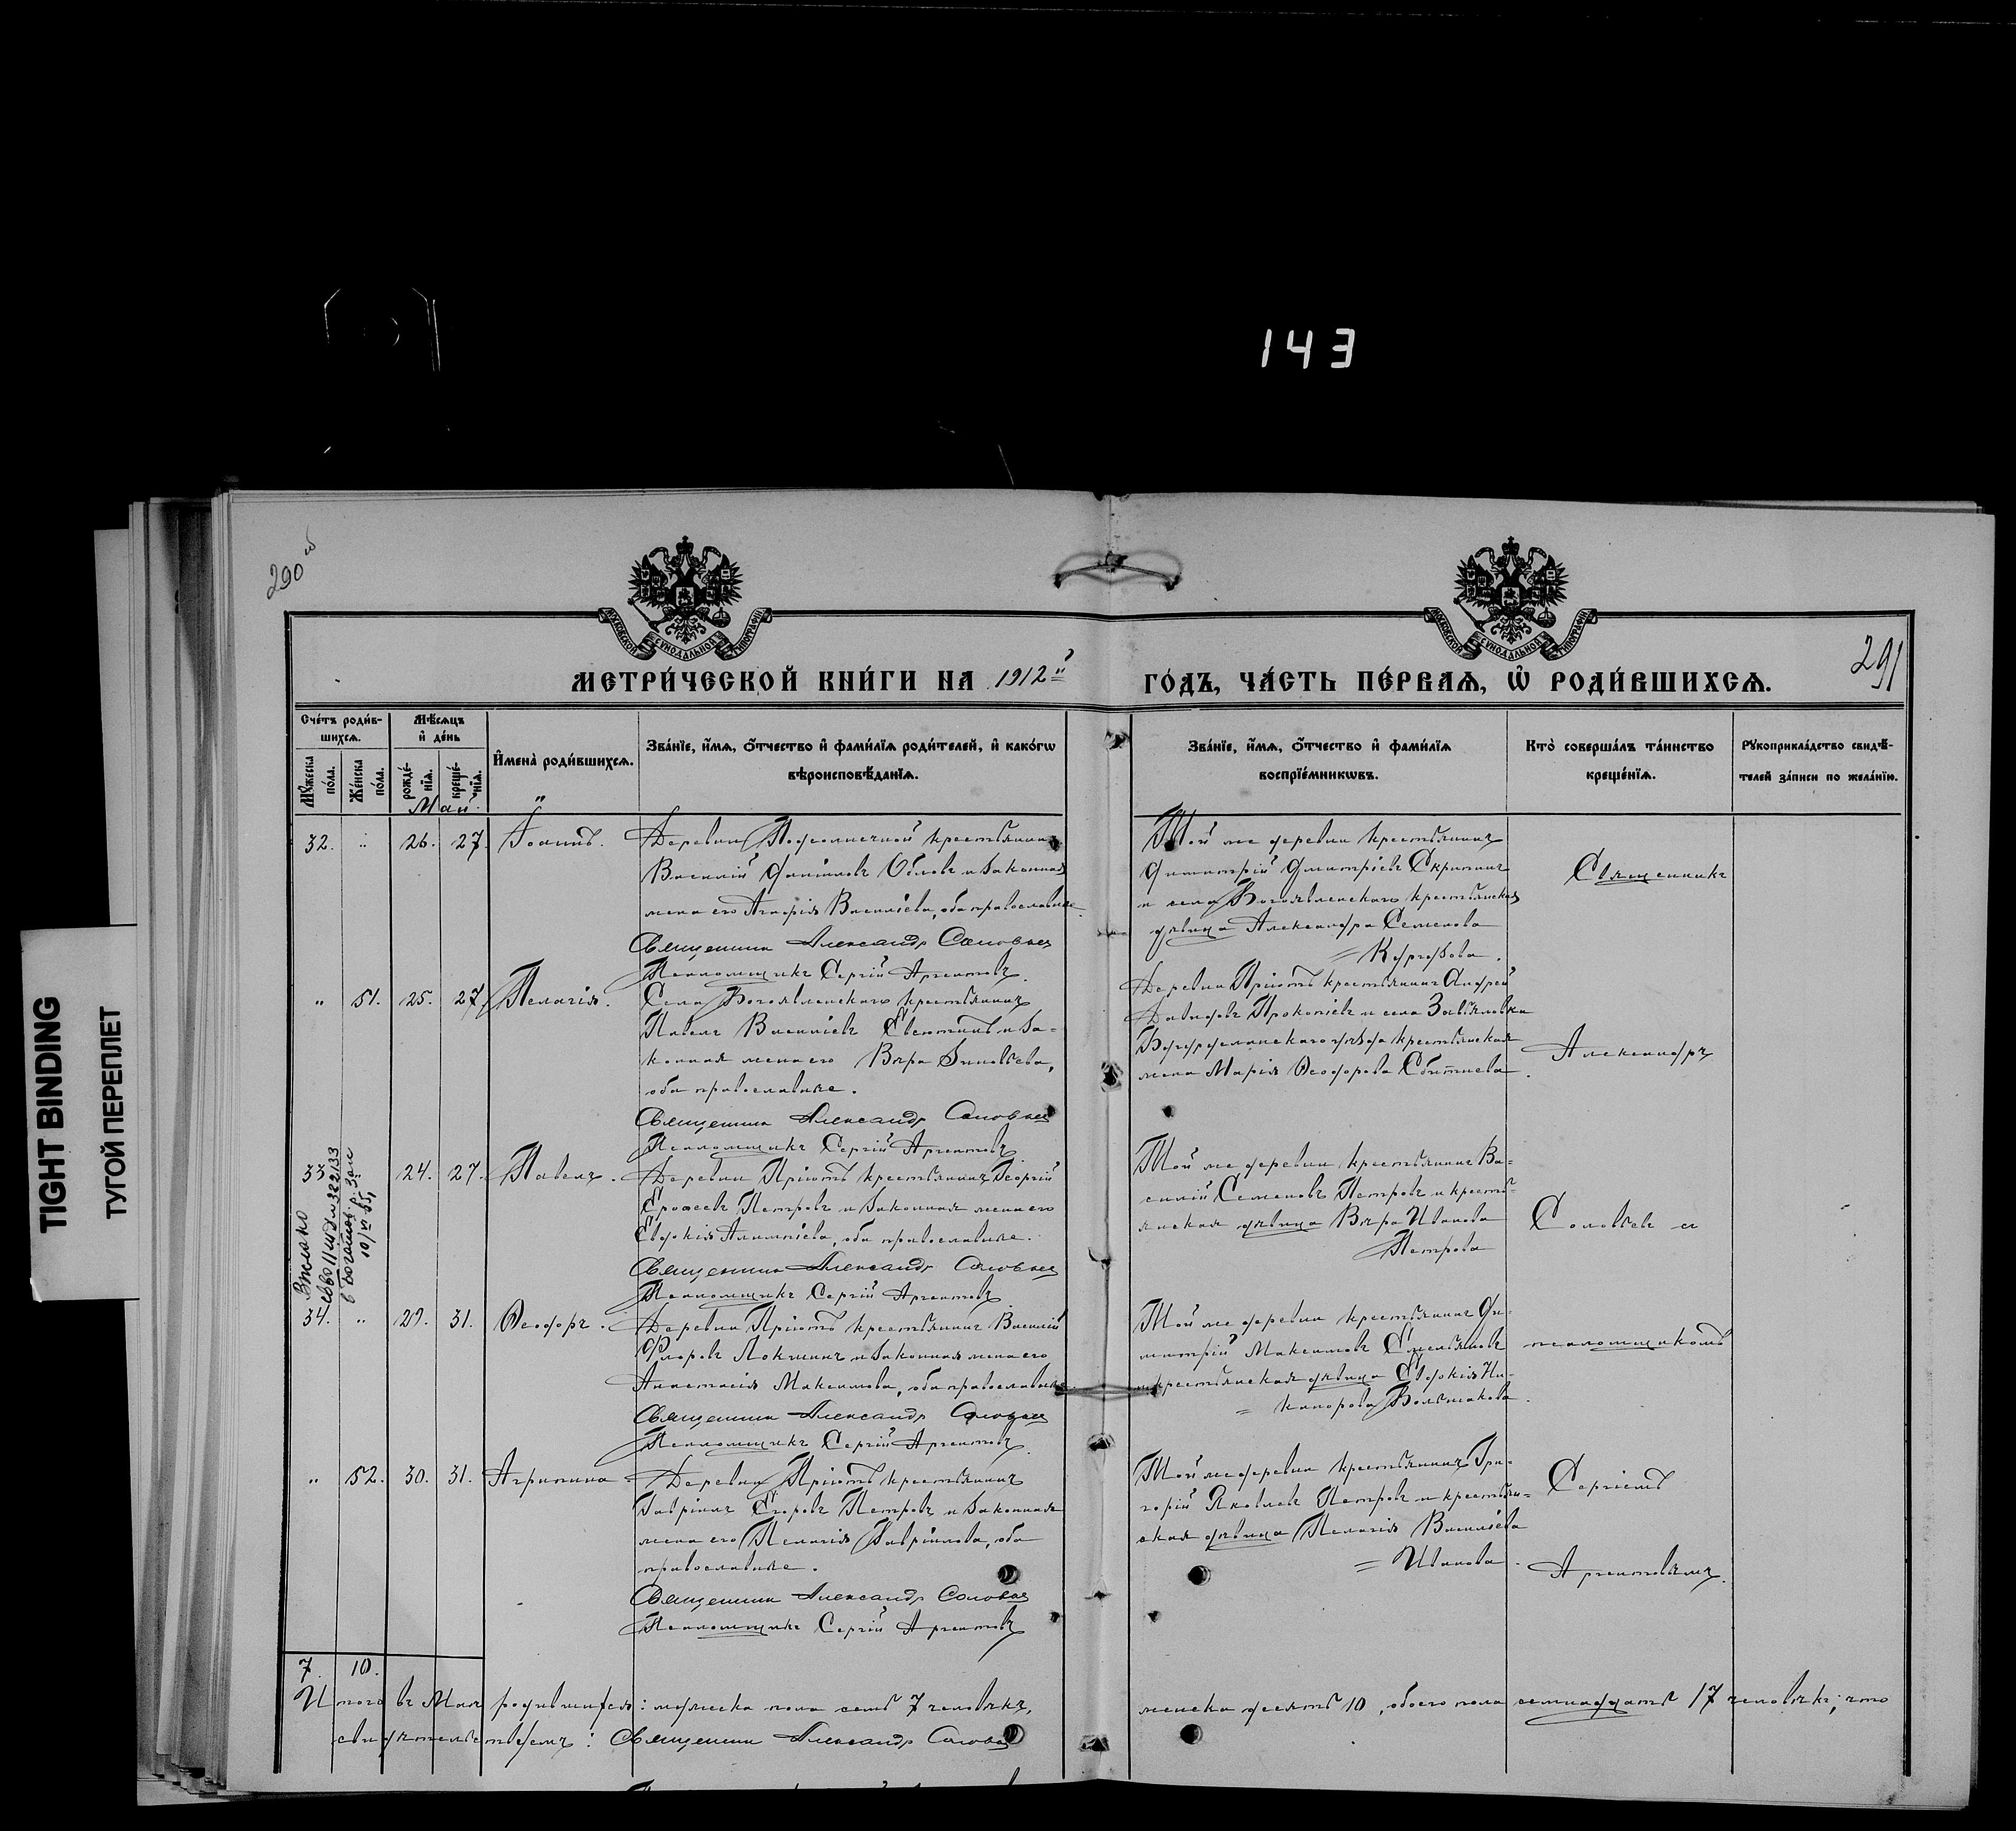 143
TIGHT BINDING
ТУГОЙ ПЕРЕПЛЕТ
290 об
291
МОСКОВСКОЙ СѴНОДАЛЬНОЙ ТИПОГРАФІИ
МОСКОВСКОЙ СѴНОДАЛЬНОЙ ТИПОГРАФІИ
МЕТРИ́ЧЕСКОЙ КНИ́ГИ НА 1912й ГО́ДЪ, ЧА́СТЬ ПЕ́РВАѦ, Ѡ҆ РОДИ́ВШИХСѦ.
Сче́тъ роди́в-
шихсѧ.
Мꙋ́жеска по́ла.
Же́нска по́ла.
Мѣ́сѧцъ
и҆ де́нь
рожде́-
нїѧ.
креще́-
нїѧ.
И҆мена̀ роди́вшихсѧ.
Зва́нїе, и҆́мѧ, ѻ҆́тчество и҆ фами́лїѧ роди́телей, и҆ како́гѡ
вѣроисповѣ́данїѧ.
Зва́нїе, и҆́мѧ, ѻ҆́тчество и҆ фами́лїѧ
воспрїе́мникѡвъ.
Кто̀ соверша́лъ та́инство
креще́нїѧ.
Рꙋкоприкла́дство свидѣ́-
телей за́писи по жела́нїю.
Май
32. " 26. 27. Іоаннъ.
Деревни Подсолнечной крестьянинъ
Василій Даніиловъ Обловъ и законная
жена его Агафія Васильева, оба православные.
Священник Александр Соловьев
Псаломщикъ Сергій Аргентовъ.
Той же деревни крестьянинъ
Димитрій Дмитріевъ Скрипинъ
и села Богоявленскаго крестьянская
дѣвица Александра Семенова
= Кердябова.
" 51. 25. 27. Пелагія.
Села Богоявленскаго крестьянинъ
Павелъ Васильевъ Севостинъ и за-
конная жена его Вѣра Зиновьева,
оба православные.
Священник Александр Соловьев
Псаломщикъ Сергій Аргентовъ
Деревни Пріютъ крестьянинъ Андрей
Давидовъ Прокопіевъ и села Завьяловки
крестьянская
жена Марія Ѳеодорова Сбитнева.
33 24. 27. Павелъ.
Деревни Пріютъ крестьянинъ Георгій
Ерофеевъ Петровъ и законная жена его
Евдокія Алимпіева, оба православные.
Священник Александр Соловьев
Псаломщикъ Сергій Аргентовъ
Той же деревни крестьянинъ Ва-
силій Семеновъ Петровъ и кресть-
янская дѣвица Вѣра Иванова
Петрова
34. " 29. 31. Ѳеодоръ.
Деревни Пріютъ крестьянинъ Василій
Флоровъ Локшинъ и законная жена его
Анастасія Максимова, оба православные.
Священник Александр Соловьев
Псаломщикъ Сергій Аргентовъ.
Той же деревни крестьянинъ Ди-
митрій Максимовъ Емельяновъ
и крестьянская дѣвица Евдокія Ни-
= канорова Большакова.
" 52. 30. 31. Агриппина
Деревни Пріютъ крестьянинъ
Гавріилъ Егоровъ Петровъ и законная
жена его Пелагія Гавріилова, оба
православные.
Священник Александр Соловьев
Псаломщикъ Сергій Аргентовъ
Той же деревни крестьянинъ Гри-
горій Яковлевъ Петровъ и крестьян-
ская дѣвица Пелагія Васильева
= Иванова.
Священникъ
Александръ
Соловьевъ и
псаломщикомъ
Сергіемъ
Аргентовымъ.
7. 10.
Итого въ Маѣ родившихся: мужеска пола семь 7 человѣкъ, женска десять 10, обоего пола семнадцать 17 человѣкъ; что
свидѣтельствуемъ: Священник Александр Соловьев